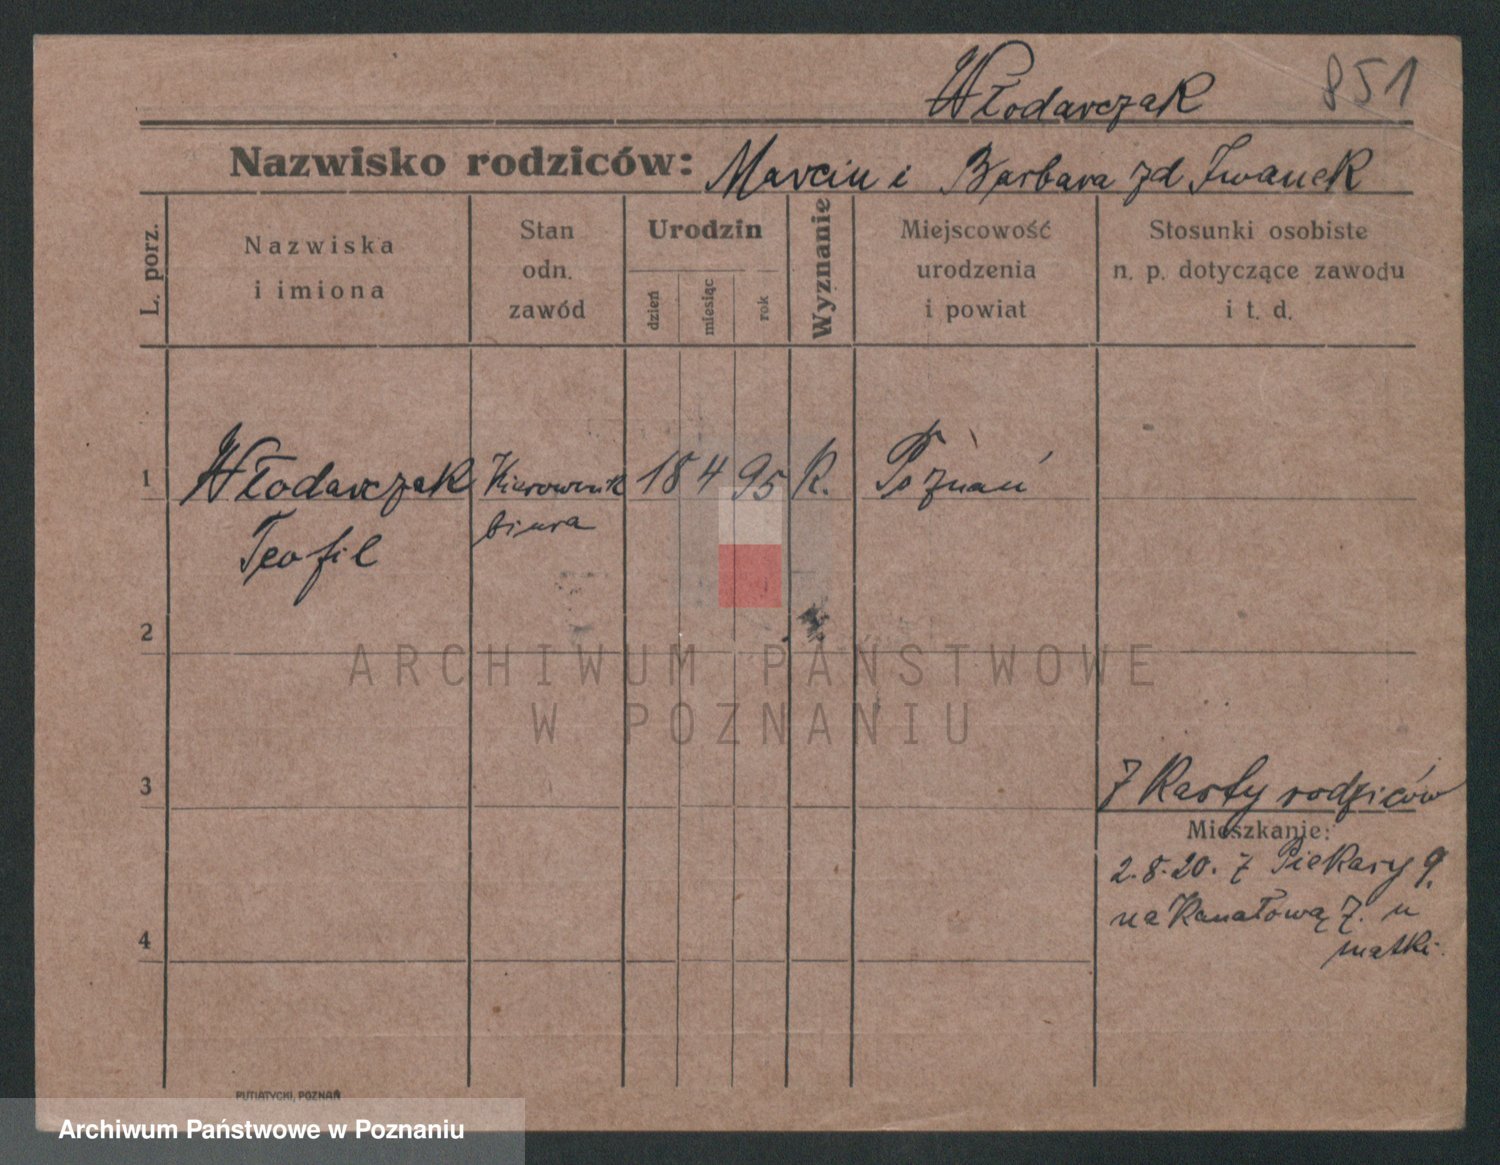 851
Włodarczak
Nazwisko rodziców: Marcin i Barbara zd Iwanek
L. porz.
Nazwiska
i imiona
Stan
odn.
zawód
Urodzin
dzień
miesiąc
rok
Wyznanie
Miejscowość
urodzenia
i powiat
Stosunki osobiste
n. p. dotyczące zawodu
i t. d.
1 Włodarczak Kierownik 18 4 95 R. Poznań
Teofil biura
2
3
4
Z Karty rodziców
Mieszkanie:
2.8.20. z Piekary 9.
na Kanałową 7. u
matki.
ARCHIWUM PAŃSTWOWE
W POZNANIU
PUTIATYCKI, POZNAŃ
Archiwum Państwowe w Poznaniu